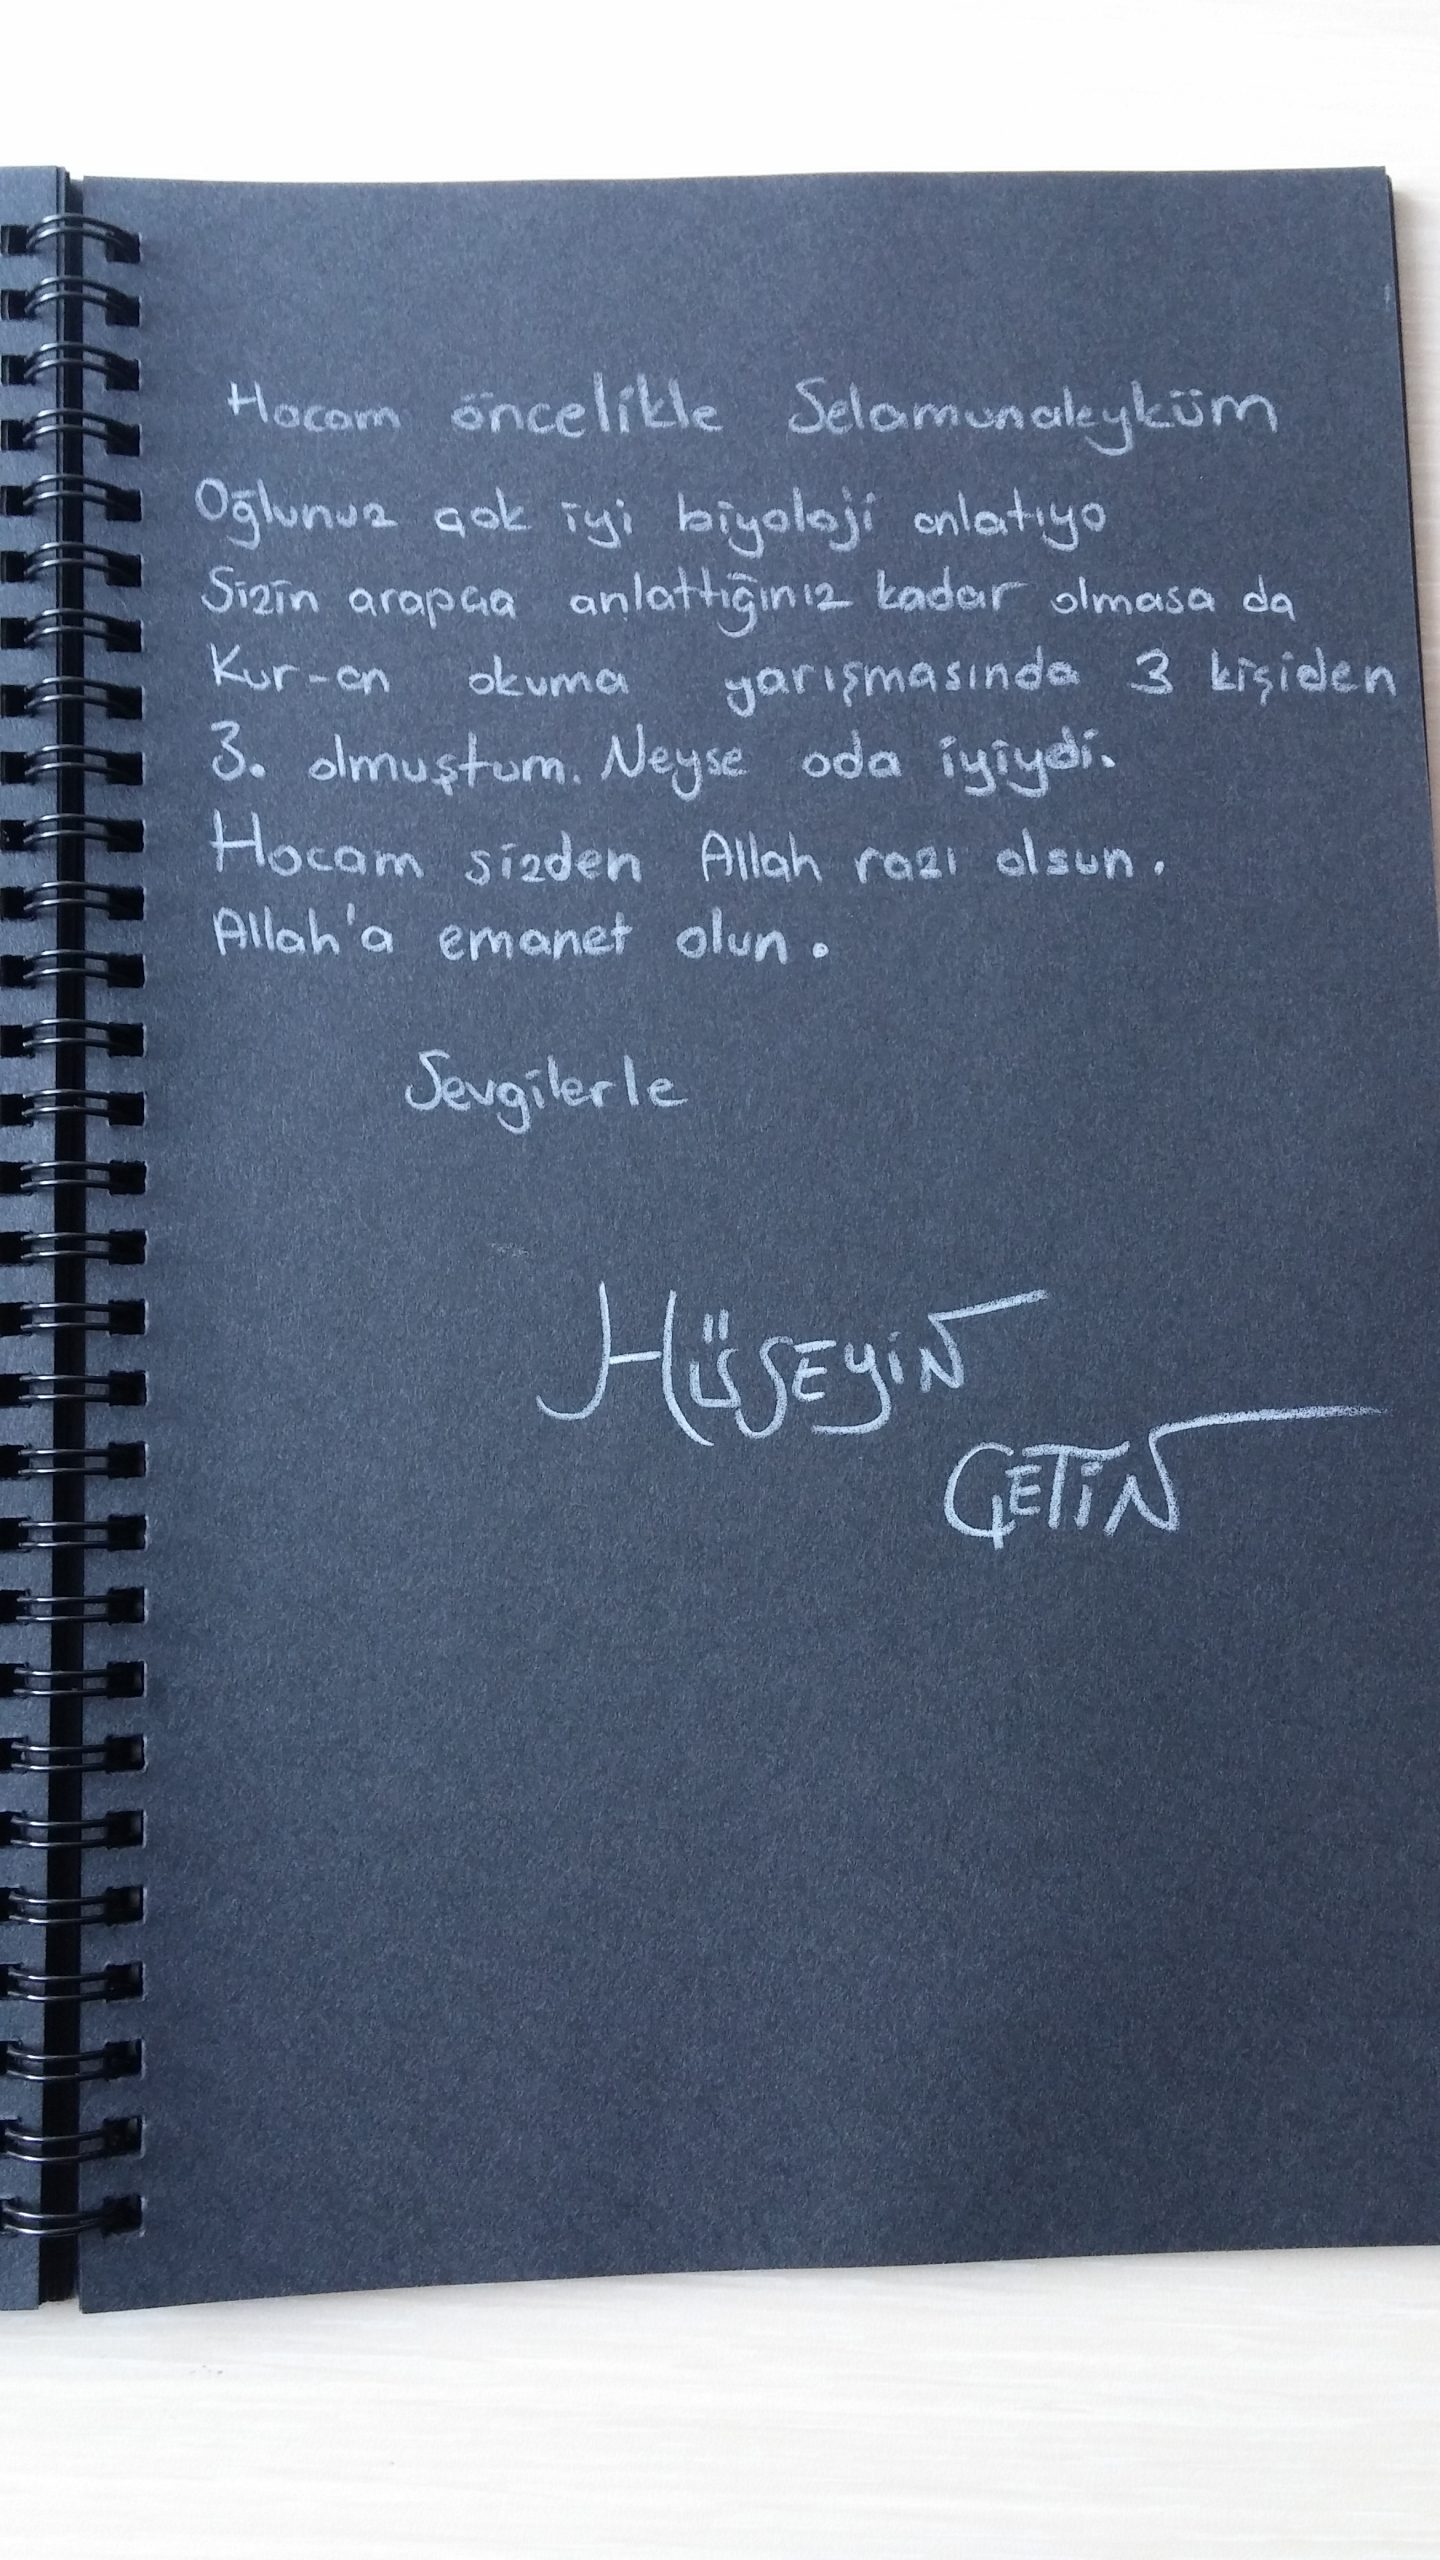 Hocam öncelikle Selamunaleyküm
Oğlunuz çok iyi biyoloji anlatıyo
Sizin arapça anlattığınız kadar olmasa da
Kur-an okuma yarışmasında 3 kişiden
3. olmuştum. Neyse oda iyiydi.
Hocam sizden Allah razı olsun.
Allah'a emanet olun.
Sevgilerle
HÜSSEYİN
ÇETİN